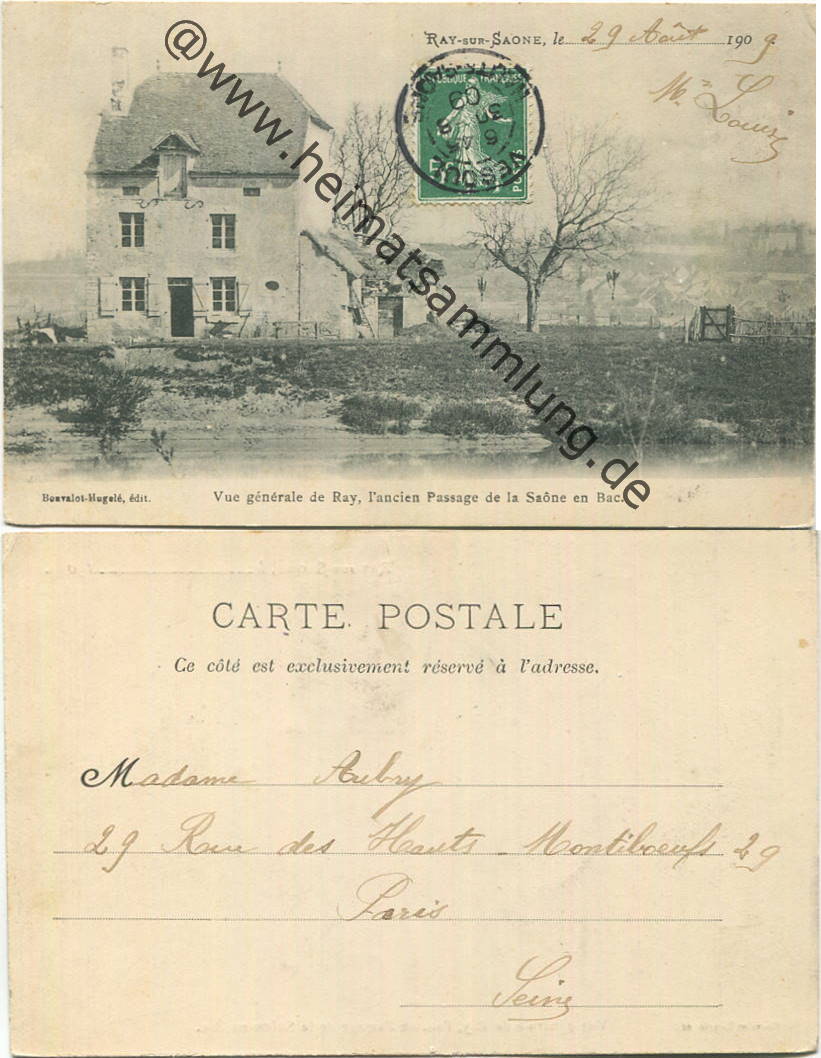 RAY-SUR-SAONE, le 29 Août 1909
Mme Louise
Bonvalot-Hugelé, édit.
Vue générale de Ray, l'ancien Passage de la Saône en Bac.
@www.heimatsammlung.de
CARTE POSTALE
Ce côté est exclusivement réservé à l'adresse.
Madame Aubry
29 Rue des Hauts-Montiboeufs 29
Paris
Seine